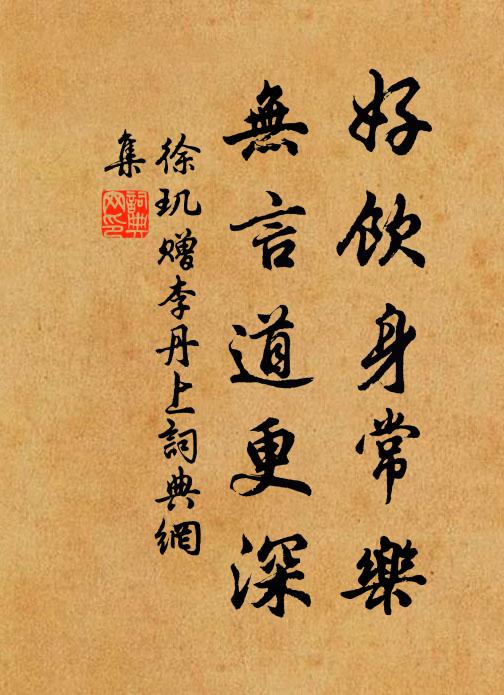 好飲身常樂
無言道更深
徐玑贈李丹士詞典網
集
詞典网印